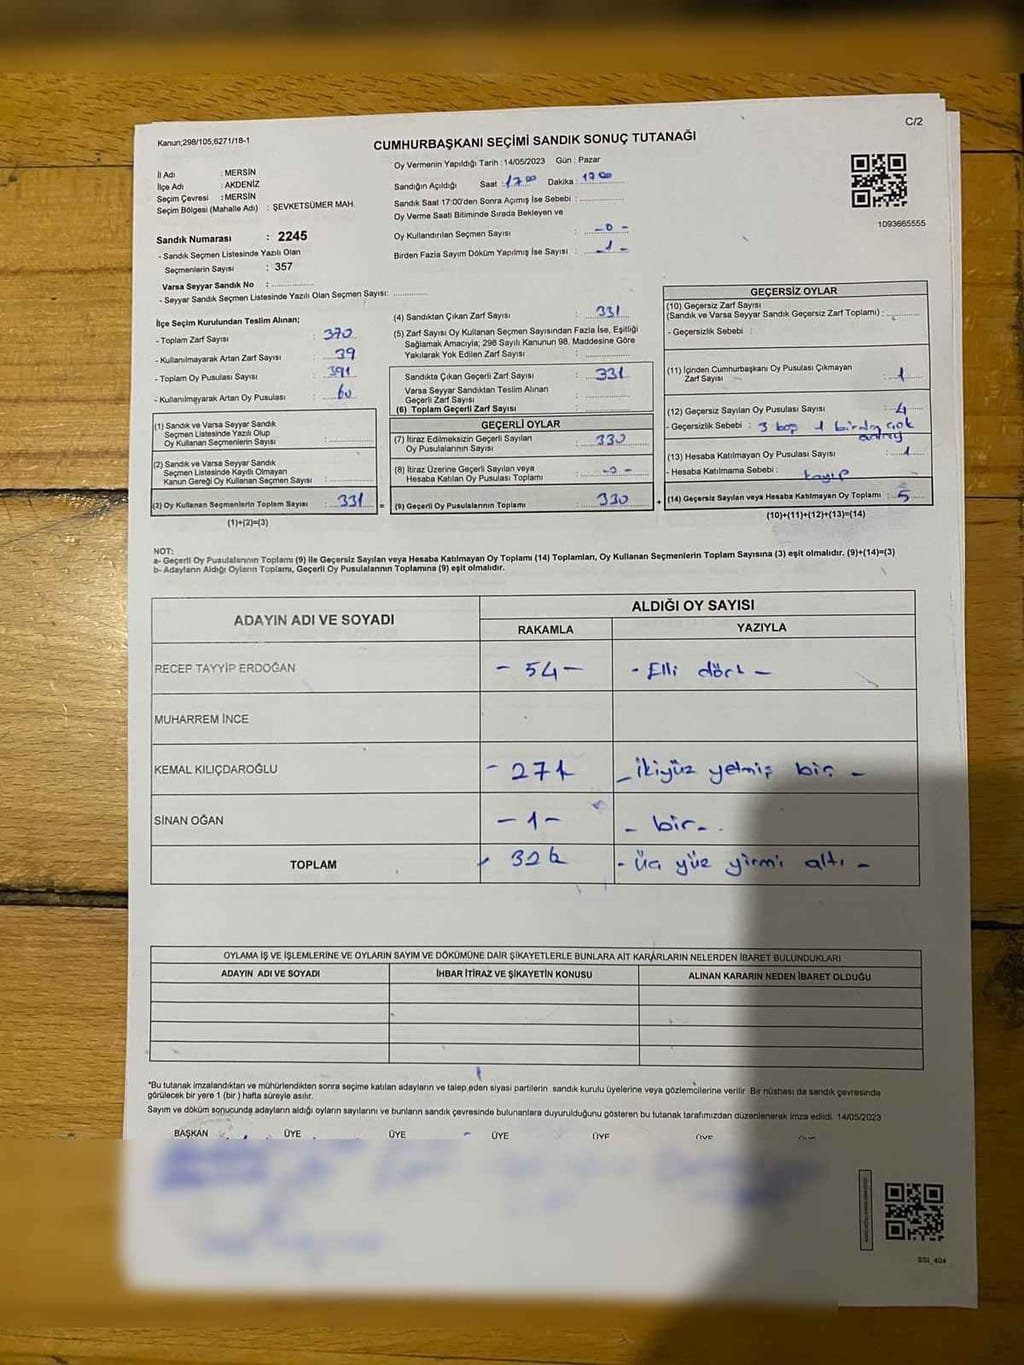 Kanun;298/105,6271/18-1
C/2
CUMHURBAŞKANI SEÇİMİ SANDIK SONUÇ TUTANAĞI
İl Adı : MERSİN
İlçe Adı : AKDENİZ
Seçim Çevresi : MERSİN
Seçim Bölgesi (Mahalle Adı) : ŞEVKETSÜMER MAH.
Sandık Numarası : 2245
- Sandık Seçmen Listesinde Yazılı Olan
Seçmenlerin Sayısı : 357
Varsa Seyyar Sandık No :
- Seyyar Sandık Seçmen Listesinde Yazılı Olan Seçmen Sayısı:
Oy Vermenin Yapıldığı Tarih : 14/05/2023 Gün : Pazar
Sandığın Açıldığı Saat : 17 00 Dakika : 17 00
Sandık Saat 17:00'den Sonra Açımış İse Sebebi :
Oy Verme Saati Bitiminde Sırada Bekleyen ve
Oy Kullandırılan Seçmen Sayısı : - 0 -
Birden Fazla Sayım Döküm Yapılmış İse Sayısı : - 1 -
1093665555
İlçe Seçim Kurulundan Teslim Alınan;
- Toplam Zarf Sayısı : 370
- Kullanılmayarak Artan Zarf Sayısı : 39
- Toplam Oy Pusulası Sayısı : 391
- Kullanılmayarak Artan Oy Pusulası : 60
(1) Sandık ve Varsa Seyyar Sandık
Seçmen Listesinde Yazılı Olup
Oy Kullanan Seçmenlerin Sayısı :
(2) Sandık ve Varsa Seyyar Sandık
Seçmen Listesinde Kayıtlı Olmayan
Kanun Gereği Oy Kullanan Seçmen Sayısı :
(3) Oy Kullanan Seçmenlerin Toplam Sayısı : 331 =
(1)+(2)=(3)
(4) Sandıktan Çıkan Zarf Sayısı : 331
(5) Zarf Sayısı Oy Kullanan Seçmen Sayısından Fazla İse, Eşitliği
Sağlamak Amacıyla; 298 Sayılı Kanunun 98. Maddesine Göre
Yakılarak Yok Edilen Zarf Sayısı :
Sandıkta Çıkan Geçerli Zarf Sayısı : 331
Varsa Seyyar Sandıktan Teslim Alınan
Geçerli Zarf Sayısı :
(6) Toplam Geçerli Zarf Sayısı :
GEÇERLİ OYLAR
(7) İtiraz Edilmeksizin Geçerli Sayılan
Oy Pusulası Sayısı : 330
(8) İtiraz Üzerine Geçerli Sayılan veya
Hesaba Katılan Oy Pusulası Toplamı : - 0 -
(9) Geçerli Oy Pusulalarının Toplamı : 330 +
GEÇERSİZ OYLAR
(10) Geçersiz Zarf Sayısı
(Sandık ve Varsa Seyyar Sandık Geçersiz Zarf Toplamı) :
- Geçersizlik Sebebi :
(11) İçinden Cumhurbaşkanı Oy Pusulası Çıkmayan
Zarf Sayısı : 1
(12) Geçersiz Sayılan Oy Pusulası Sayısı : 4
- Geçersizlik Sebebi : 3 boş 1 birden çok
(13) Hesaba Katılmayan Oy Pusulası Sayısı : 1
- Hesaba Katılmama Sebebi : kayıp
(14) Geçersiz Sayılan veya Hesaba Katılmayan Oy Toplamı : 5
(10)+(11)+(12)+(13)=(14)
NOT:
a- Geçerli Oy Pusulalarının Toplamı (9) ile Geçersiz Sayılan veya Hesaba Katılmayan Oy Toplamı (14) Toplamları, Oy Kullanan Seçmenlerin Toplam Sayısına (3) eşit olmalıdır. (9)+(14)=(3)
b- Adayların Aldığı Oyların Toplamı, Geçerli Oy Pusulalarının Toplamına (9) eşit olmalıdır.
ADAYIN ADI VE SOYADI
ALDIĞI OY SAYISI
RAKAMLA YAZIYLA
RECEP TAYYİP ERDOĞAN - 54 - - Elli dört -
MUHARREM İNCE
KEMAL KILIÇDAROĞLU - 271 - ikiyüz yetmiş bir -
SİNAN OĞAN - 1 - - bir -
TOPLAM - 326 - üç yüz yirmi altı -
OYLAMA İŞ VE İŞLEMLERİNE VE OYLARIN SAYIM VE DÖKÜMÜNE DAİR ŞİKAYETLERLE BUNLARA AİT KARARLARIN NELERDEN İBARET BULUNDUKLARI
ADAYIN ADI VE SOYADI İHBAR İTİRAZ VE ŞİKAYETİN KONUSU ALINAN KARARIN NEDEN İBARET OLDUĞU
*Bu tutanak imzalandıktan ve mühürlendikten sonra seçime katılan adayların ve talep eden siyasi partilerin sandık kurulu üyelerine veya gözlemcilerine verilir. Bir nüshası da sandık çevresinde
görülecek bir yere 1 (bir) hafta süreyle asılır.
Sayım ve döküm sonucunda adayların aldığı oyların sayılarını ve bunların sandık çevresinde bulunanlara duyurulduğunu gösteren bu tutanak tarafımızdan düzenlenerek imza edildi. 14/05/2023
BAŞKAN ÜYE ÜYE ÜYE ÜYE ÜYE